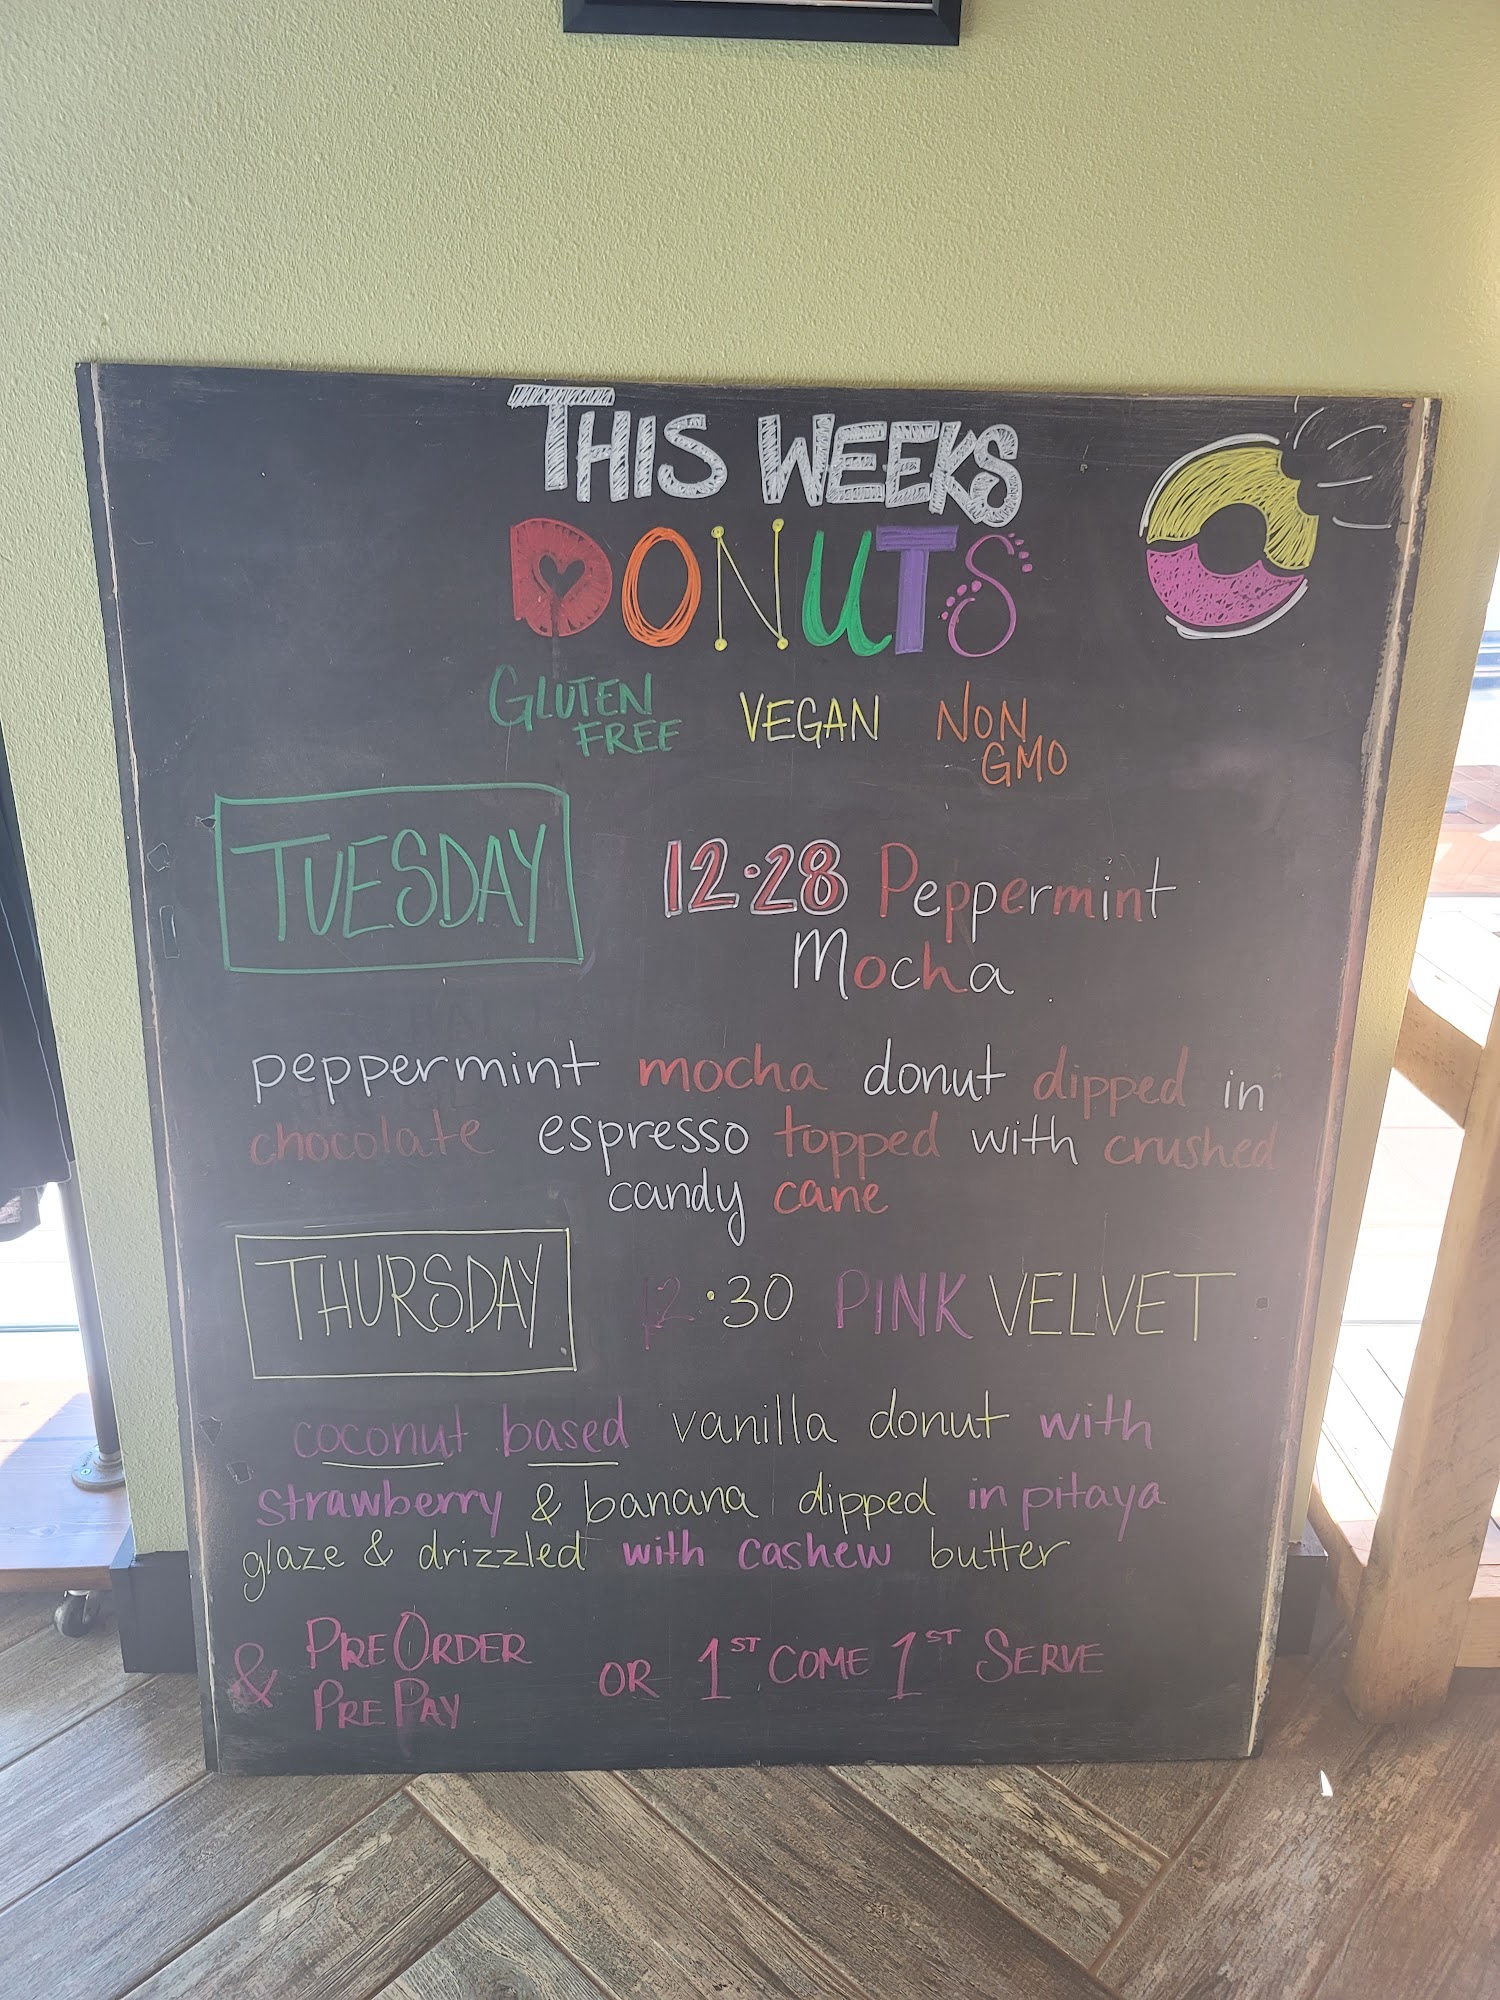 THIS WEEKS
DONUTS
GLUTEN FREE VEGAN NON GMO
TUESDAY
12.28 Peppermint
Mocha
peppermint mocha donut dipped in
chocolate espresso topped with crushed
candy cane
THURSDAY
12.30 PINK VELVET
coconut based vanilla donut with
strawberry & banana dipped in pitaya
glaze & drizzled with cashew butter
& PRE ORDER
PRE PAY
OR 1ST COME 1ST SERVE